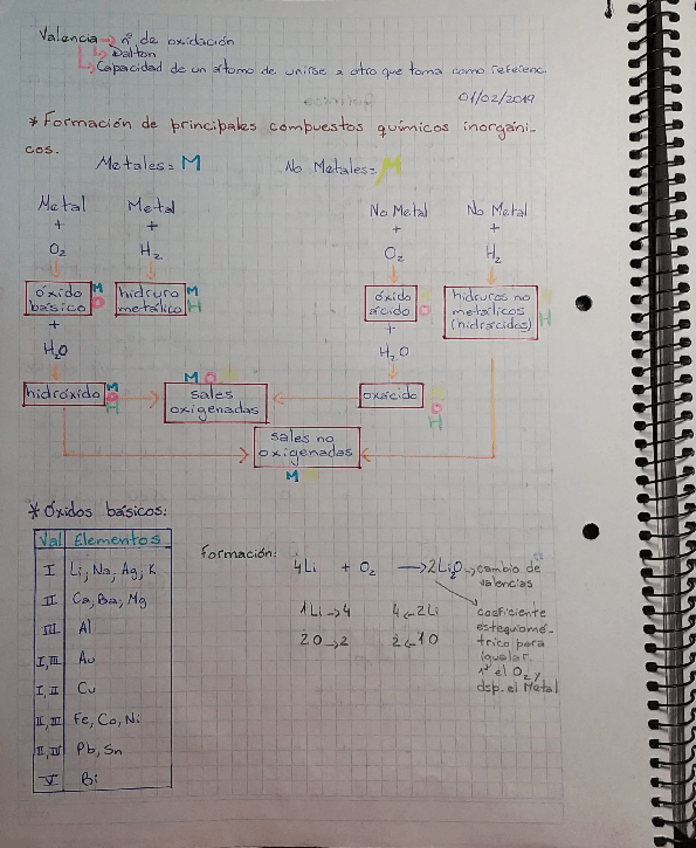 Valencia → nº de oxidación
↳ Dalton
↳ Capacidad de un átomo de unirse a otro que toma como referenc.
01/02/2019
* Formación de principales compuestos químicos inorgáni-
cos.
Metales = M No Metales = M
Metal Metal No Metal No Metal
+ + + +
O₂ H₂ O₂ H₂
óxido básico M O
hidruro metálico M H
óxido ácido O
hidruros no metálicos (hidrácidos) H
+ +
H₂O H₂O
hidróxido M O H
M O
sales oxigenadas
oxácido O H
sales no oxigenadas
M
* Óxidos básicos:
Val Elementos
I Li, Na, Ag, K
II Ca, Ba, Mg
III Al
I, III Au
I, II Cu
II, III Fe, Co, Ni
II, IV Pb, Sn
V Bi
Formación:
4Li + O₂ → 2Li₂O → cambio de
valencias
1Li → 4 4 ← 2Li
2O → 2 2 ← 1O
coeficiente
estequiomé-
trico para
igualar.
1º el O₂ y
dsp. el Metal